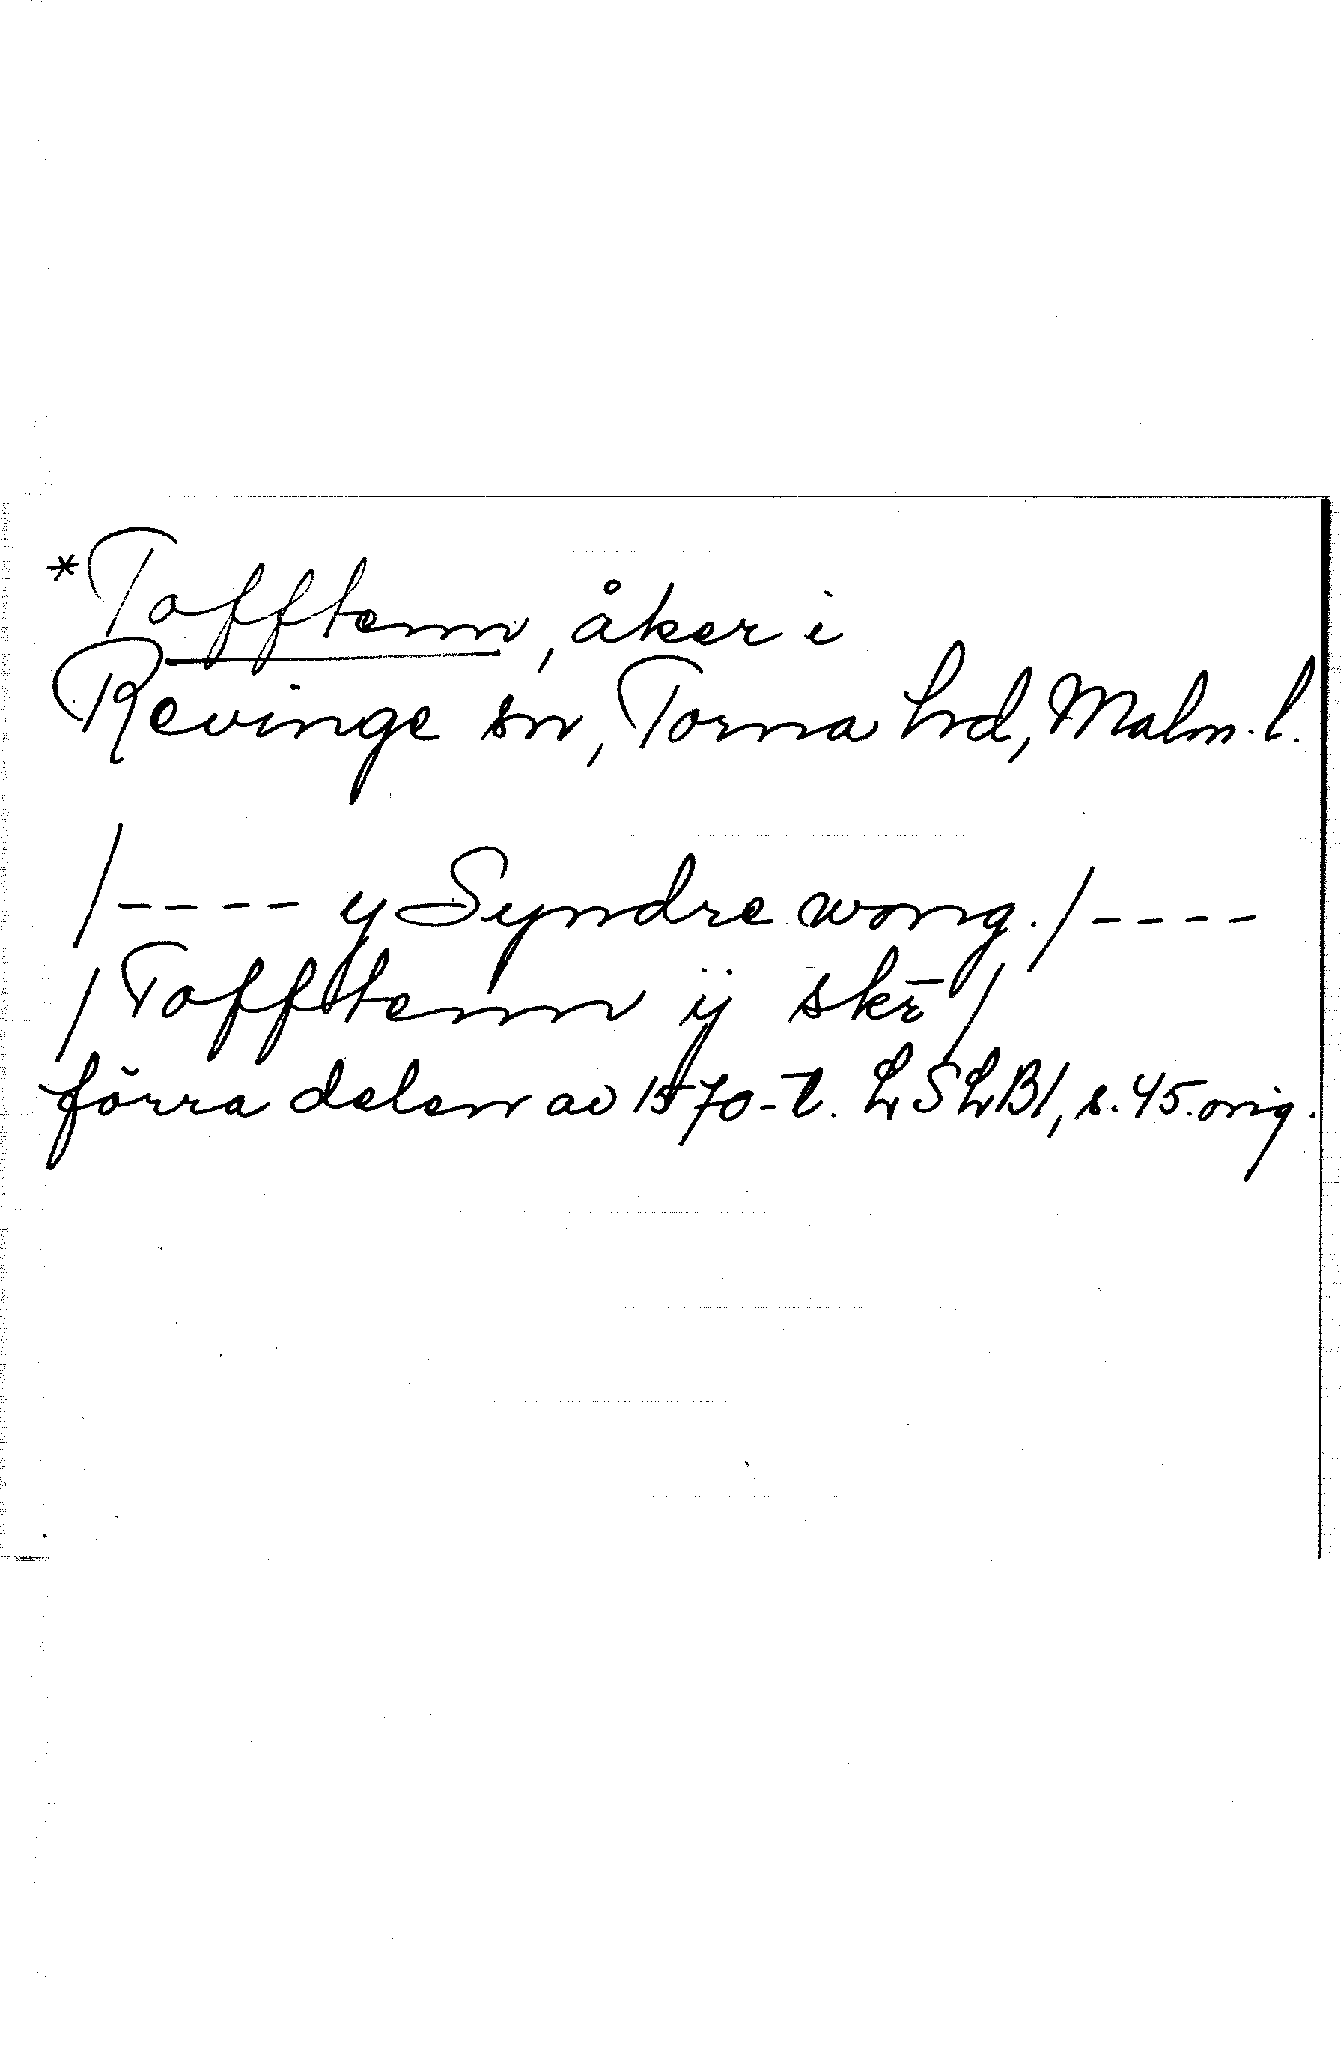 *Tofftenn, åker i
Revinge sn, Torna hrd, Malm. l.
/---- y Syndre wong. /----
/ Tofftenn ij skr̄ /
förra delen av 1570-t. LSLB1, s. 45. orig.